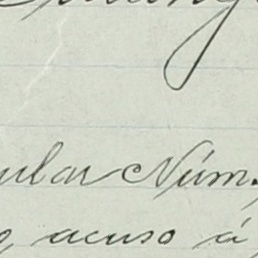 ular Núm.
acuso á